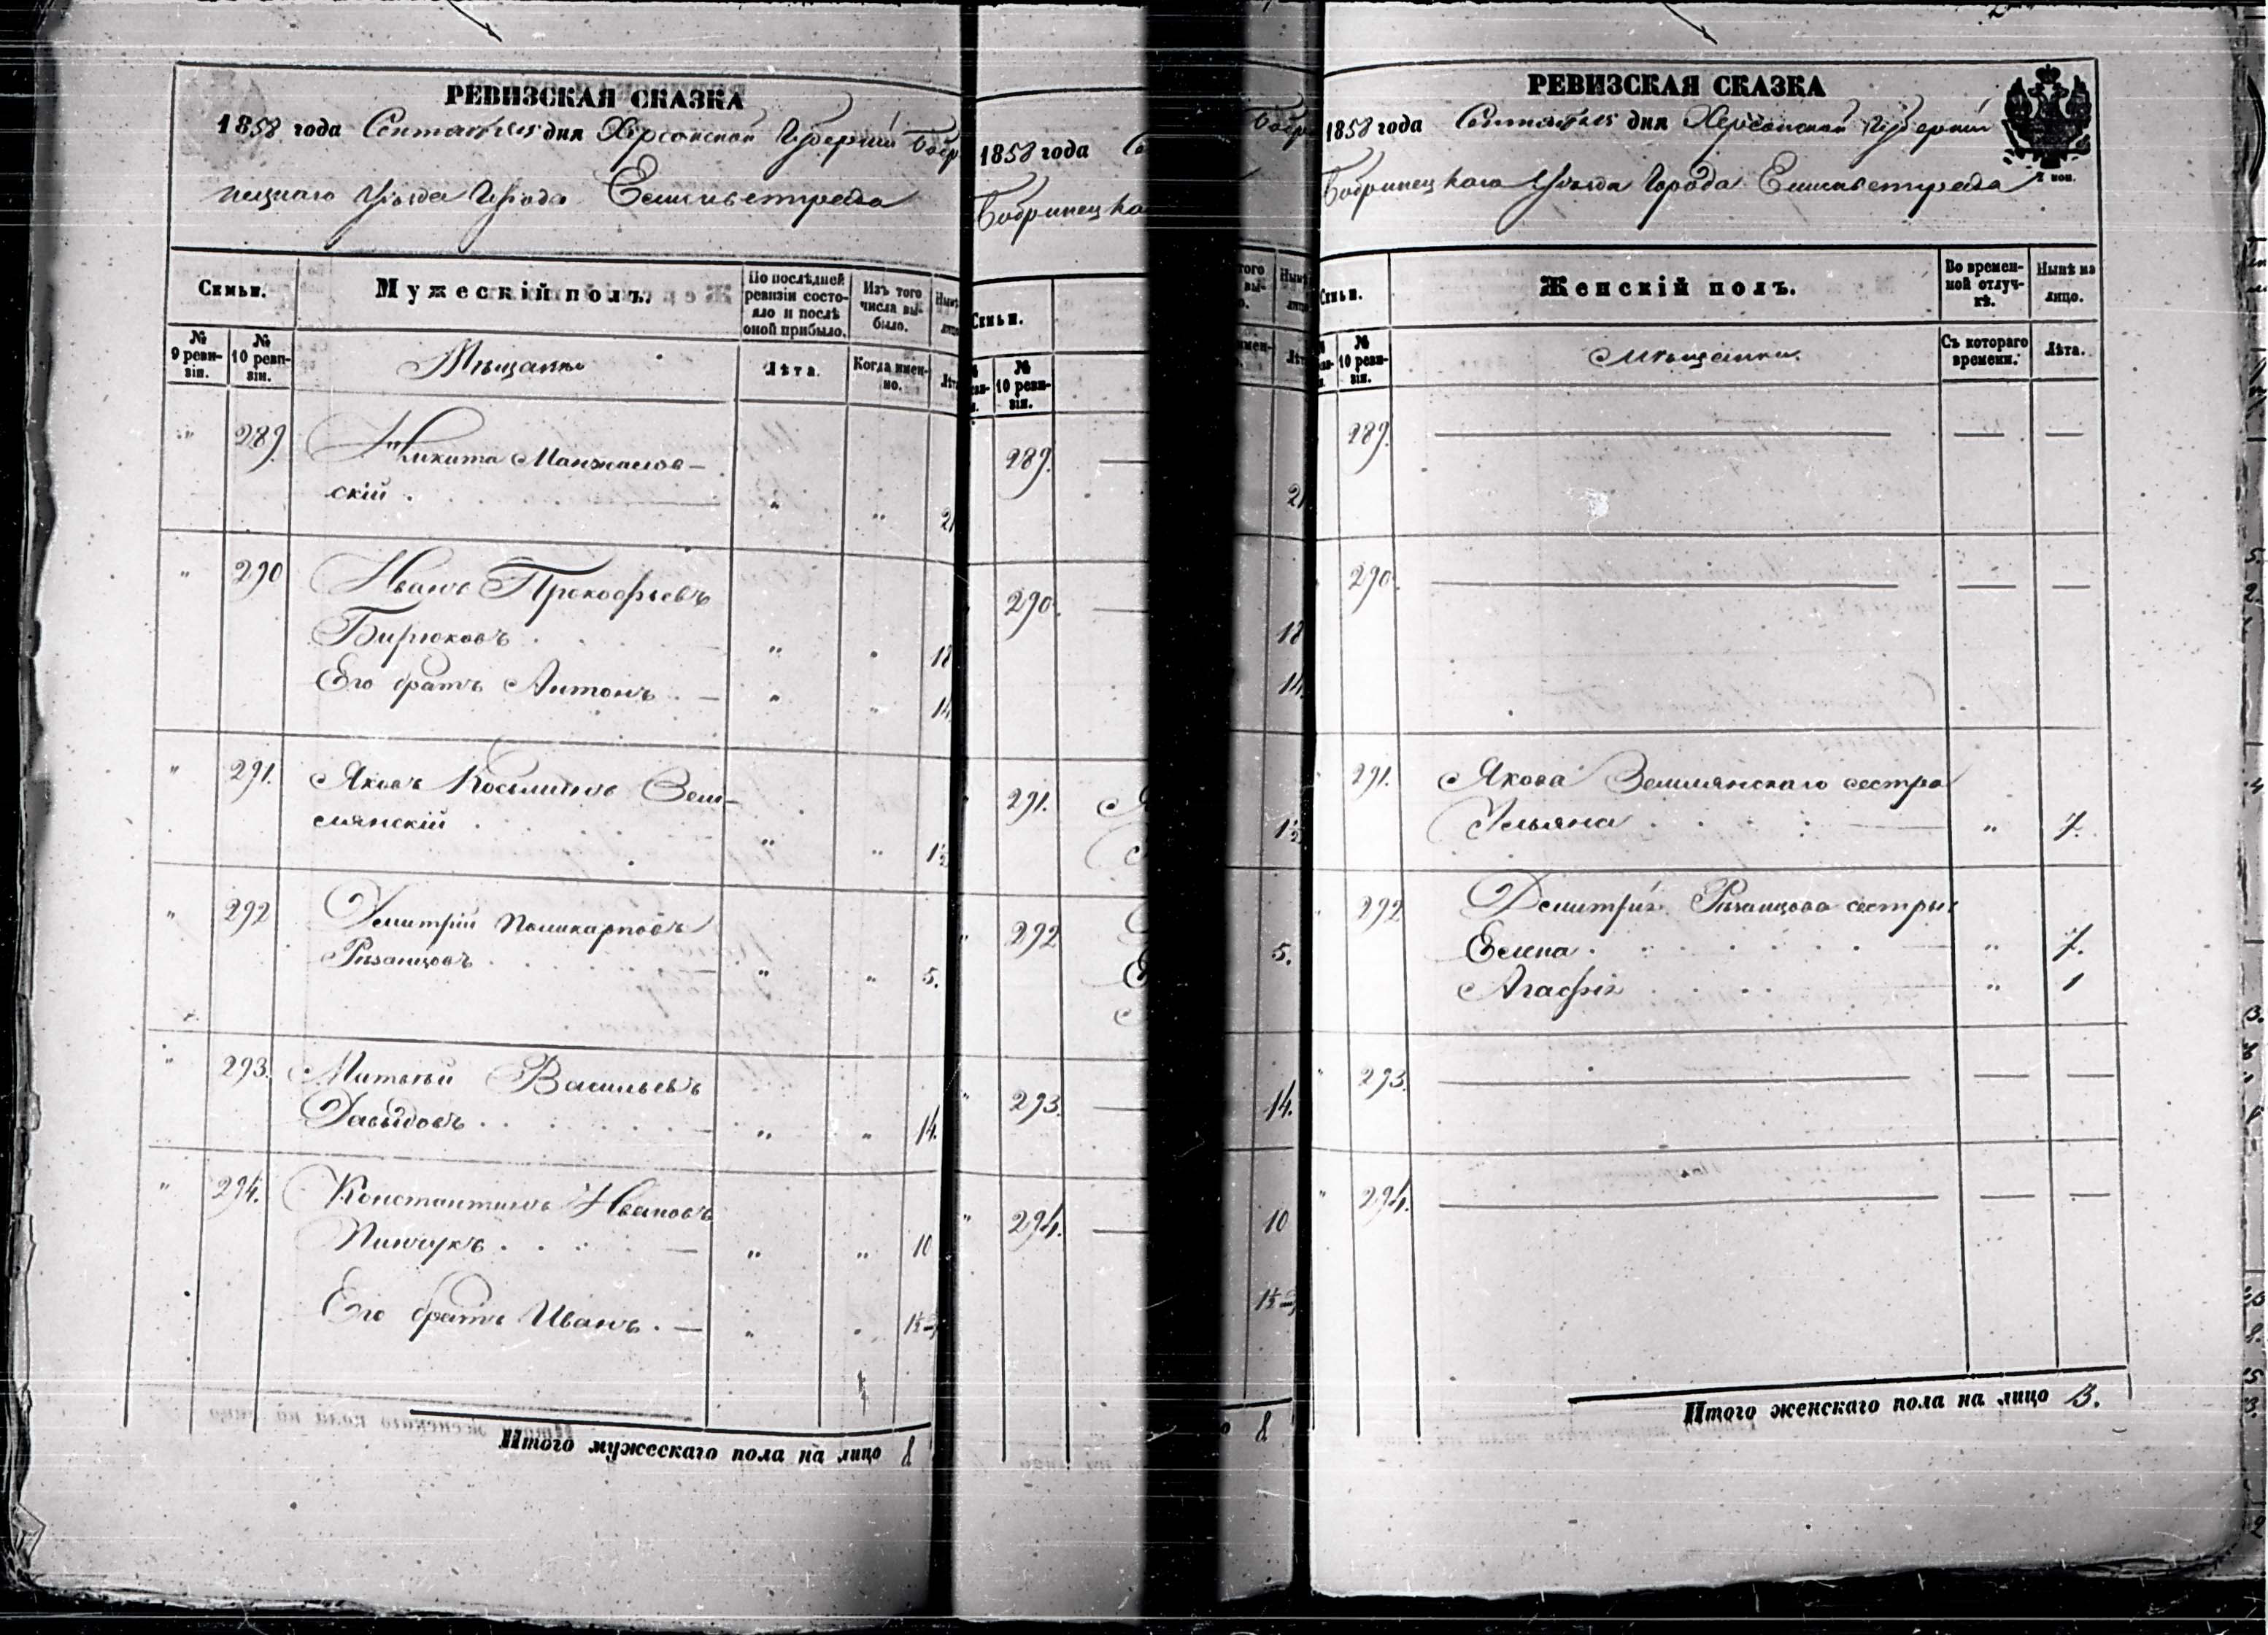 РЕВИЗСКАЯ СКАЗКА
1858 года Сентября дня Херсонской Губерніи Бобр
нецкаго Уѣзда Города Елисаветграда
Семьи.
Мужескій полъ.
По послѣдней ревизіи состояло и послѣ оной прибыло.
Изъ того числа выбыло.
№ 9 ревизіи.
№ 10 ревизіи.
Мѣщане
Лѣта.
Когда именно.
" 289. Никита Манжалов-
скій . " " 21
" 290 Иванъ Прокофьевъ
Бирюковъ . . . " " 18
Его братъ Антонъ . . — " " 14
" 291. Яковъ Косьминъ Зем-
лянскій . " " 1½
" 292 Дмитрій Поликарповъ
Рязанцовъ . . . " " 5.
" 293. Матвѣй Васильевъ
Давыдовъ . . . " " 14.
" 294. Константинъ Ивановъ
Пинчукъ . . . — " " 10
Его братъ Иванъ . — " " 1½
Итого мужескаго пола на лицо 8
1858 года Се
Бобринецка
Семьи.
№ 10 ревизіи.
289.
290.
291.
292
293.
294.
Бобр
21
18
14.
1½
5.
14.
10
1½
8
РЕВИЗСКАЯ СКАЗКА
1858 года Сентября дня Херсонской Губерніи
Бобринецкаго Уѣзда Города Елисаветграда
Семьи.
Женскій полъ.
Во временной отлучкѣ.
Нынѣ на лицо.
№ 10 ревизіи.
Мѣщанки.
Съ котораго времени.
Лѣта.
289. — — —
290. — — —
291. Якова Землянскаго сестра
Ульяна . . . — " 7.
292 Дмитрія Рязанцова сестры
Елена . . . " 7.
Агафія . . . " 1
293. — — —
294. — — —
Итого женскаго пола на лицо 3.